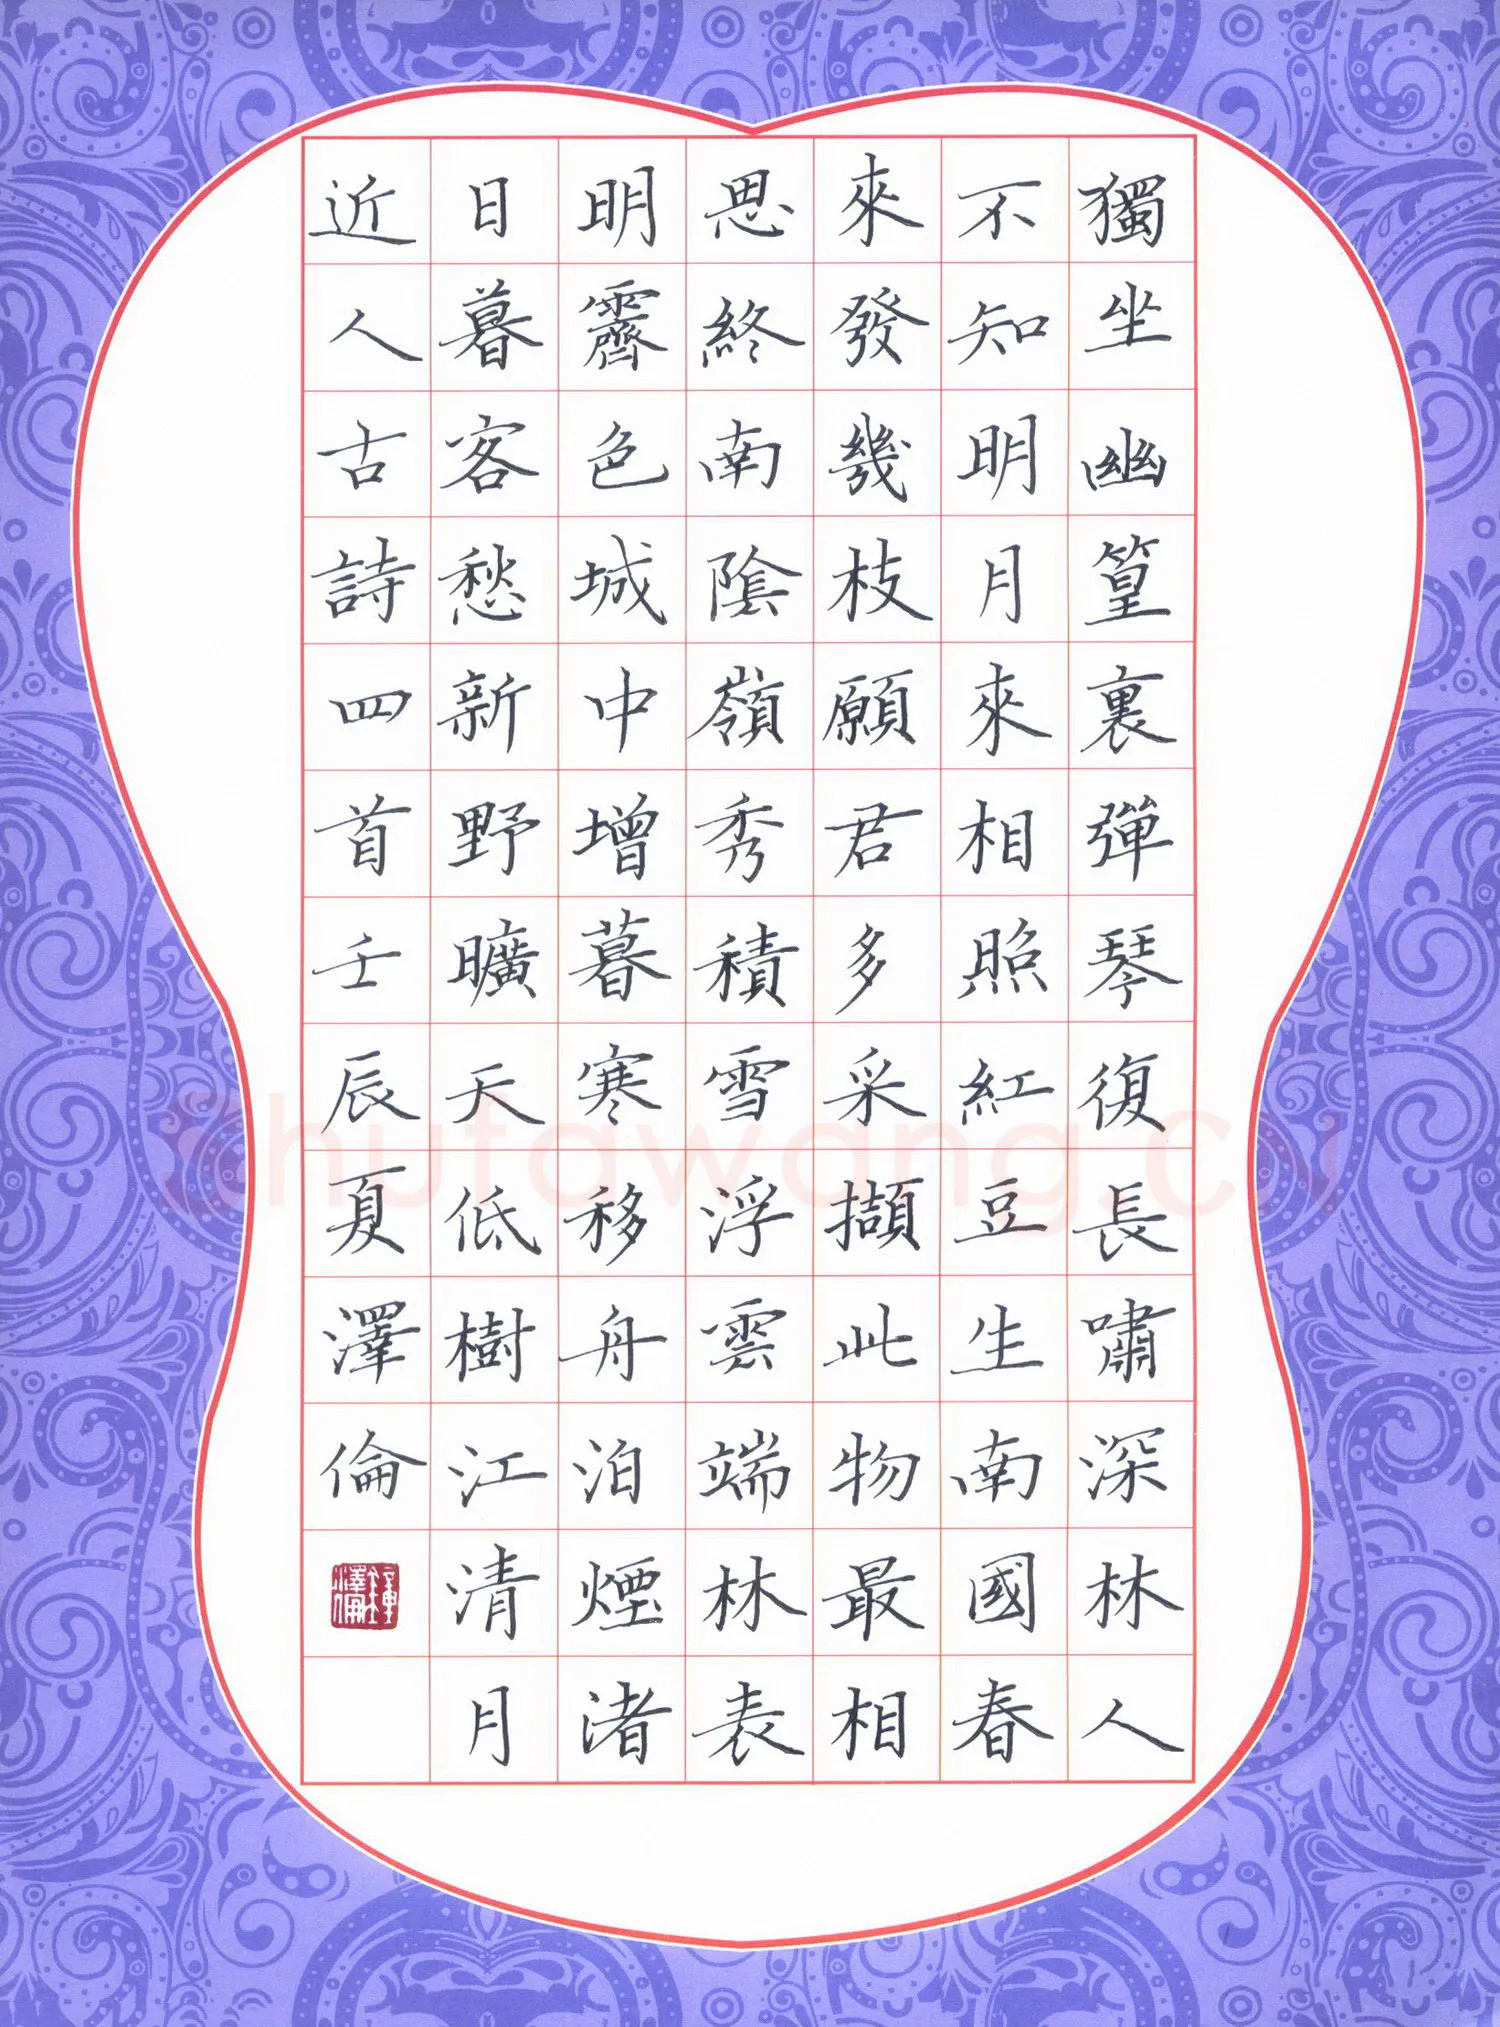 獨坐幽篁裏彈琴復長嘯深林人
不知明月來相照紅豆生南國春
來發幾枝願君多采擷此物最相
思終南陰嶺秀積雪浮雲端林表
明霽色城中增暮寒移舟泊煙渚
日暮客愁新野曠天低樹江清月
近人古詩四首壬辰夏澤倫
鍾澤倫
shufawang.cn